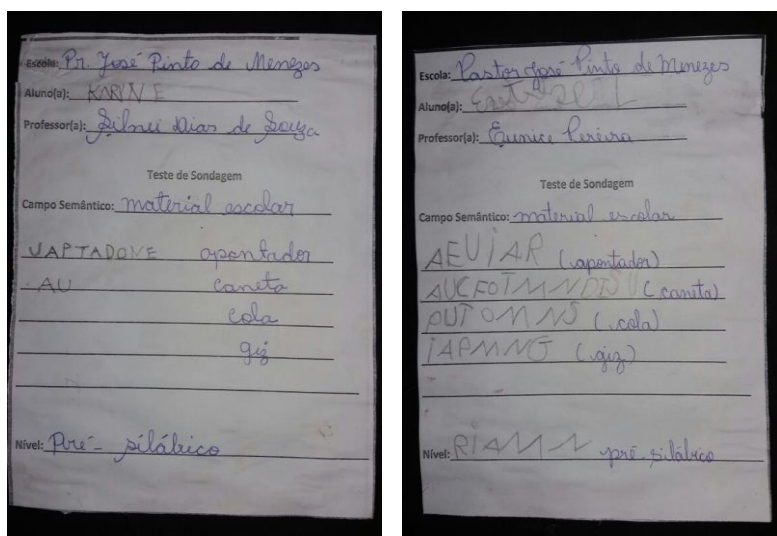 Escola: Pr. José Pinto de Menezes
Aluno(a): KARINE
Professor(a): Silnei Dias de Souza
Teste de Sondagem
Campo Semântico: material escolar
VAPTADONE apontador
AU caneta
cola
giz
Nível: Pré-silábico
Escola: Pastor José Pinto de Menezes
Aluno(a):
Professor(a): Eunice Pereira
Teste de Sondagem
Campo Semântico: material escolar
AEUIAR (apontador)
(caneta)
OUTOMNNS (cola)
IAPMNNG (giz)
Nível: RIAMN pré-silábico